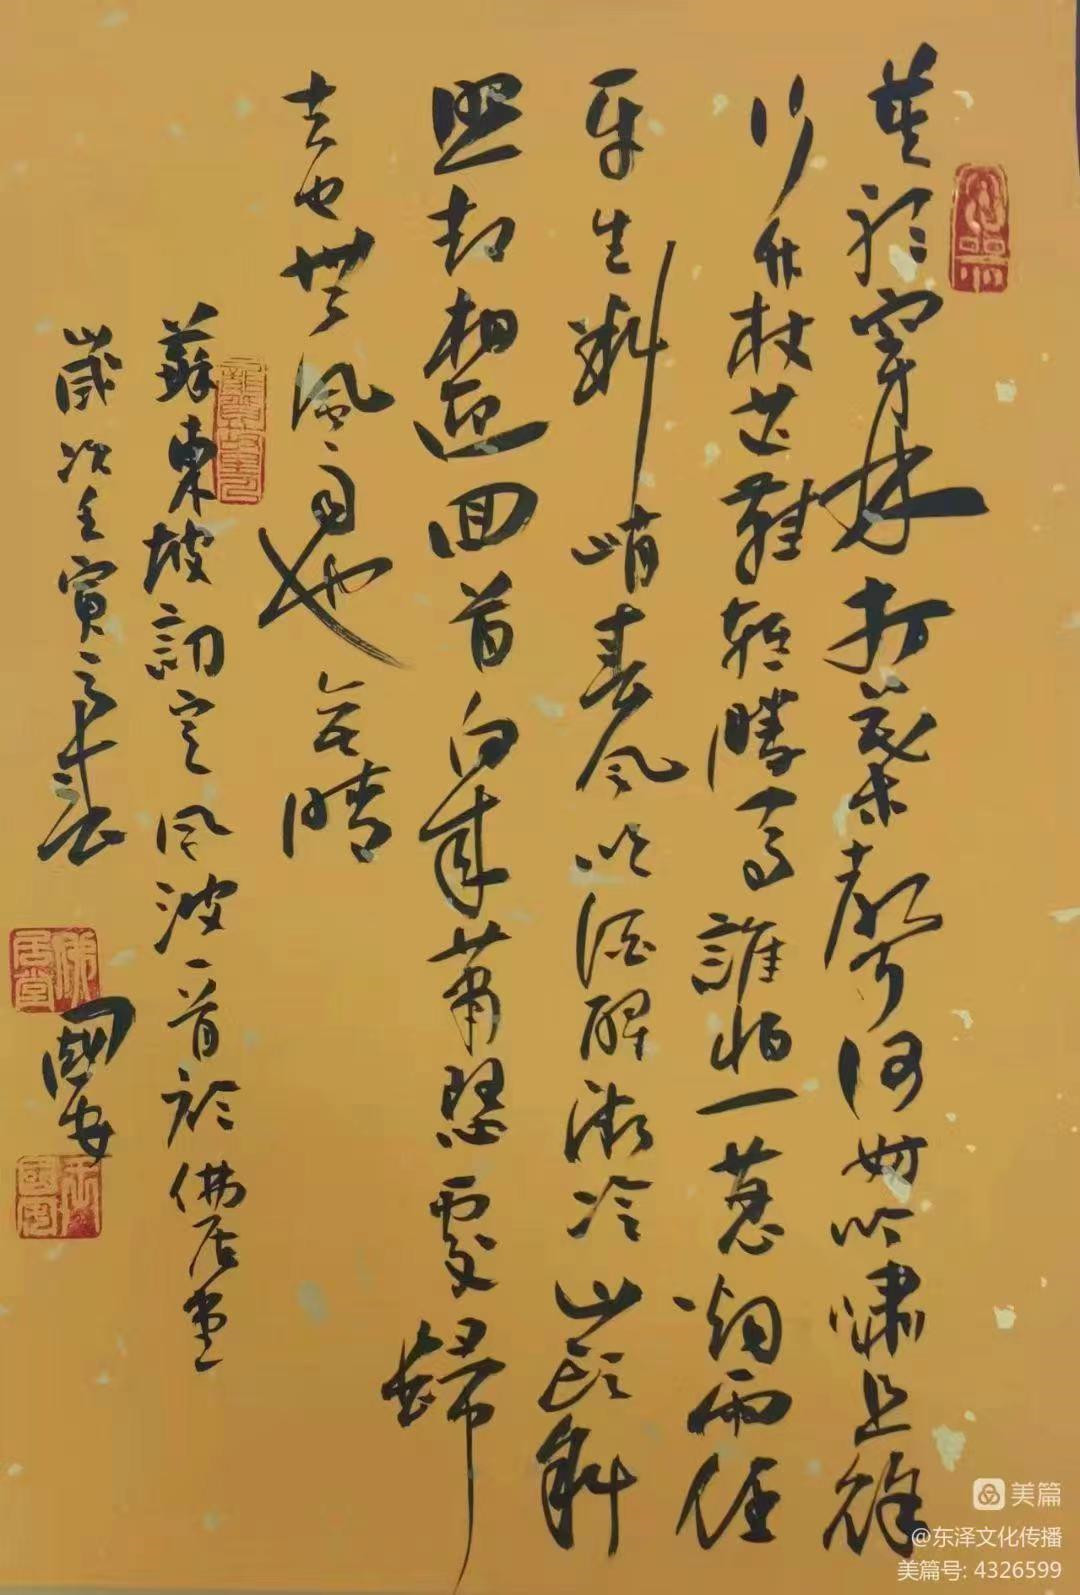 莫聽穿林打葉聲何妨吟嘯且徐
行竹杖芒鞋輕勝馬誰怕一蓑烟雨任
平生料峭春風吹酒醒微冷山頭斜
照却相迎回首向來蕭瑟處歸
去也無風雨也无晴
蘇東坡詞定風波一首於佛居堂
歲次壬寅
國安
佛居堂
美篇
@东泽文化传播
美篇号: 4326599